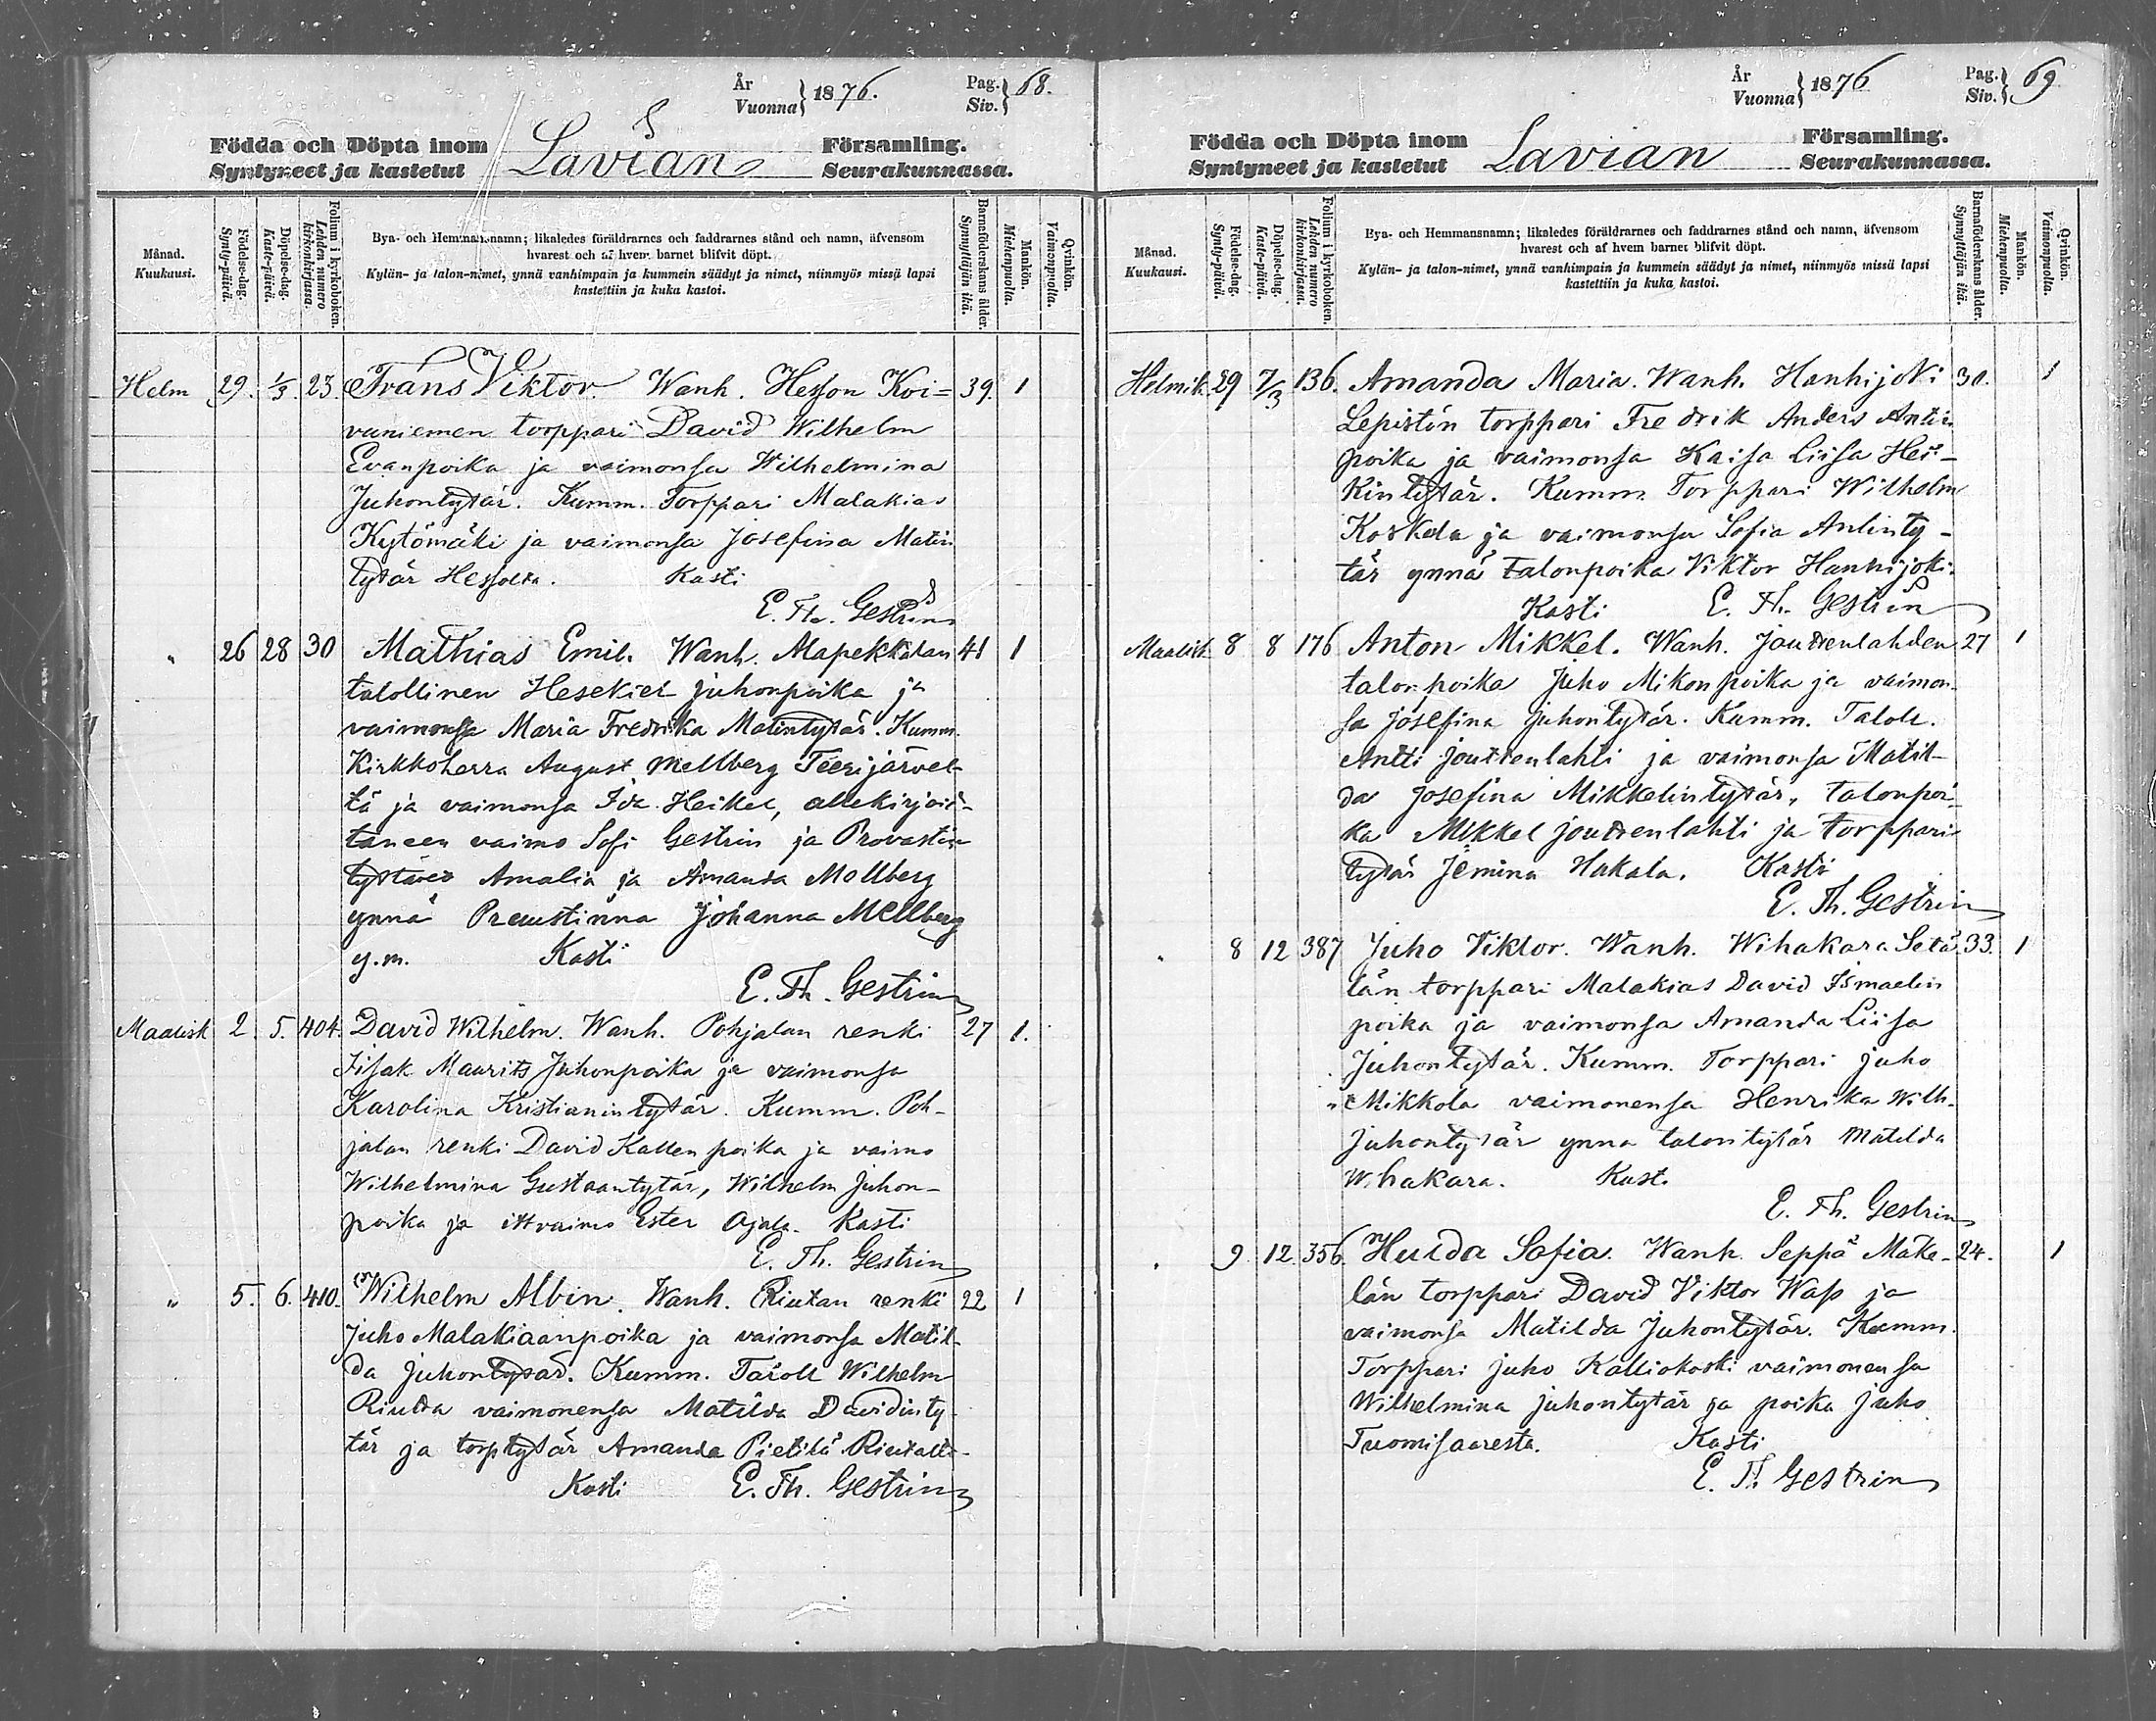 År
Vuonna} 1876. Pag.
Siv.} 68.
Födda och Döpta inom Lavian Församling.
Syntyneet ja kastetut Seurakunnassa.
Månad.
Kuukausi.
Födelse-dag.
Synty-päivä.
Döpelse-dag.
Kaste-päivä.
Folium i kyrkoboken.
Lehden numero
kirkonkirjassa.
Bya- och Hemmansnamn; likaledes föräldrarnes och faddrarnes stånd och namn, äfvensom
hvarest och af hvem barnet blifvit döpt.
Kylän- ja talon-nimet, ynnä vanhimpain ja kummein säädyt ja nimet, niinmyös missä lapsi
kastettiin ja kuka kastoi.
Barnaföderskans ålder.
Synnyttäjän ikä.
Mankön.
Miehenpuolia.
Qvinkön.
Vaimonpuolia.
Helm 29. 1/3. 23. Frans Viktor. Wanh. Hesson Koi= 39. 1
vuniemen torppari David Wilhelm
Evanpoika ja vaimonsa Wilhelmina
Juhontytär. Kumm. Torppari Malakias
Kytömäki ja vaimonsa Josefina Matin
tytär Hessolta. Kasti
E. Th. Gestrin
" 26 28 30 Mathias Emil. Wanh. Mapekkalan 41 1
talollinen Hesekiel Juhonpoika ja
vaimonsa Maria Fredrika Matintytär. Kumm.
Kirkkoherra August Mellberg Teerijärvel-
tä ja vaimonsa Ida Heikel, allekirjoit-
taneen vaimo Sofi Gestrin ja Provastin
tyttäret Amalia ja Amanda Mellberg
ynnä Prowstinna Johanna Mellberg
y.m. Kasti
E. Th. Gestrin
Maalisk 2. 5. 404. David Wilhelm. Wanh. Pohjalan renki 27 1.
Iisak Maurits Juhonpoika ja vaimonsa
Karolina Kristianintytär. Kumm. Poh-
jalan renki David Kallenpoika ja vaimo
Wilhelmina Gustaantytär, Wilhelm Juhon-
poika ja itvaimo Ester Ojala. Kasti
E. Th. Gestrin
" 5. 6. 410. Wilhelm Albin. Wanh. Riutan renki 22 1
Juho Malakiaanpoika ja vaimonsa Matil-
da Juhontytär. Kumm. Taloll Wilhelm
Riutta vaimonensa Matilda Davidinty-
tär ja torptytär Amanda Pietilä Riutalta.
Kasti E. Th. Gestrin
År
Vuonna} 1876 Pag.
Siv.} 69
Födda och Döpta inom Lavian Församling.
Syntyneet ja kastetut Seurakunnassa.
Månad.
Kuukausi.
Födelse-dag.
Synty-päivä.
Döpelse-dag.
Kaste-päivä.
Folium i kyrkoboken.
Lehden numero
kirkonkirjassa.
Bya- och Hemmansnamn; likaledes föräldrarnes och faddrarnes stånd och namn, äfvensom
hvarest och af hvem barnet blifvit döpt.
Kylän- ja talon-nimet, ynnä vanhimpain ja kummein säädyt ja nimet, niinmyös missä lapsi
kastettiin ja kuka kastoi.
Barnaföderskans ålder.
Synnyttäjän ikä.
Mankön.
Miehenpuolia.
Qvinkön.
Vaimonpuolia.
Helmik. 29 7/3 136. Amanda Maria. Wanh. Hanhijoki 30. 1
Lepistön torppari Fredrik Anders Antin
poika ja vaimonsa Kaisa Liisa Hei-
kintytär. Kumm. Torppari Wilhelm
Koskela ja vaimonsa Sofia Antinty-
tär ynnä talonpoika Viktor Hanhijoki.
Kasti E. Th. Gestrin
Maalisk 8 8 176 Anton Mikkel. Wanh. Jouttenlahden 27 1
talonpoika Juho Mikonpoika ja vaimon-
sa Josefina Juhontytär. Kumm. Taloll.
Antti Jouttenlahti ja vaimonsa Matil-
da Josefina Mikkelintytär, talonpoi-
ka Mikkel Jouttenlahti ja torppari
tytär Jemina Hakala. Kasti
E. Th. Gestrin
" 8 12 387 Juho Viktor. Wanh. Wihakara Setä 33. 1
län torppari Malakias David Ismaelin
poika ja vaimonsa Amanda Liisa
Juhontytär. Kumm. Torppari Juho
Mikkola vaimonensa Henrika Wilh.
Juhontytär ynna talontytär Matilda
Wihakara. Kasti
E. Th. Gestrin
" 9 12. 356. Hulda Sofia. Wanh. Seppä Mäke- 24. 1
län torppari David Viktor Wass ja
vaimonsa Matilda Juhontytär. Kumm.
Torppari Juho Kalliokoski vaimonensa
Wilhelmina Juhontytär ja poika Juho
Tuomisaaresta. Kasti
E. Th Gestrin